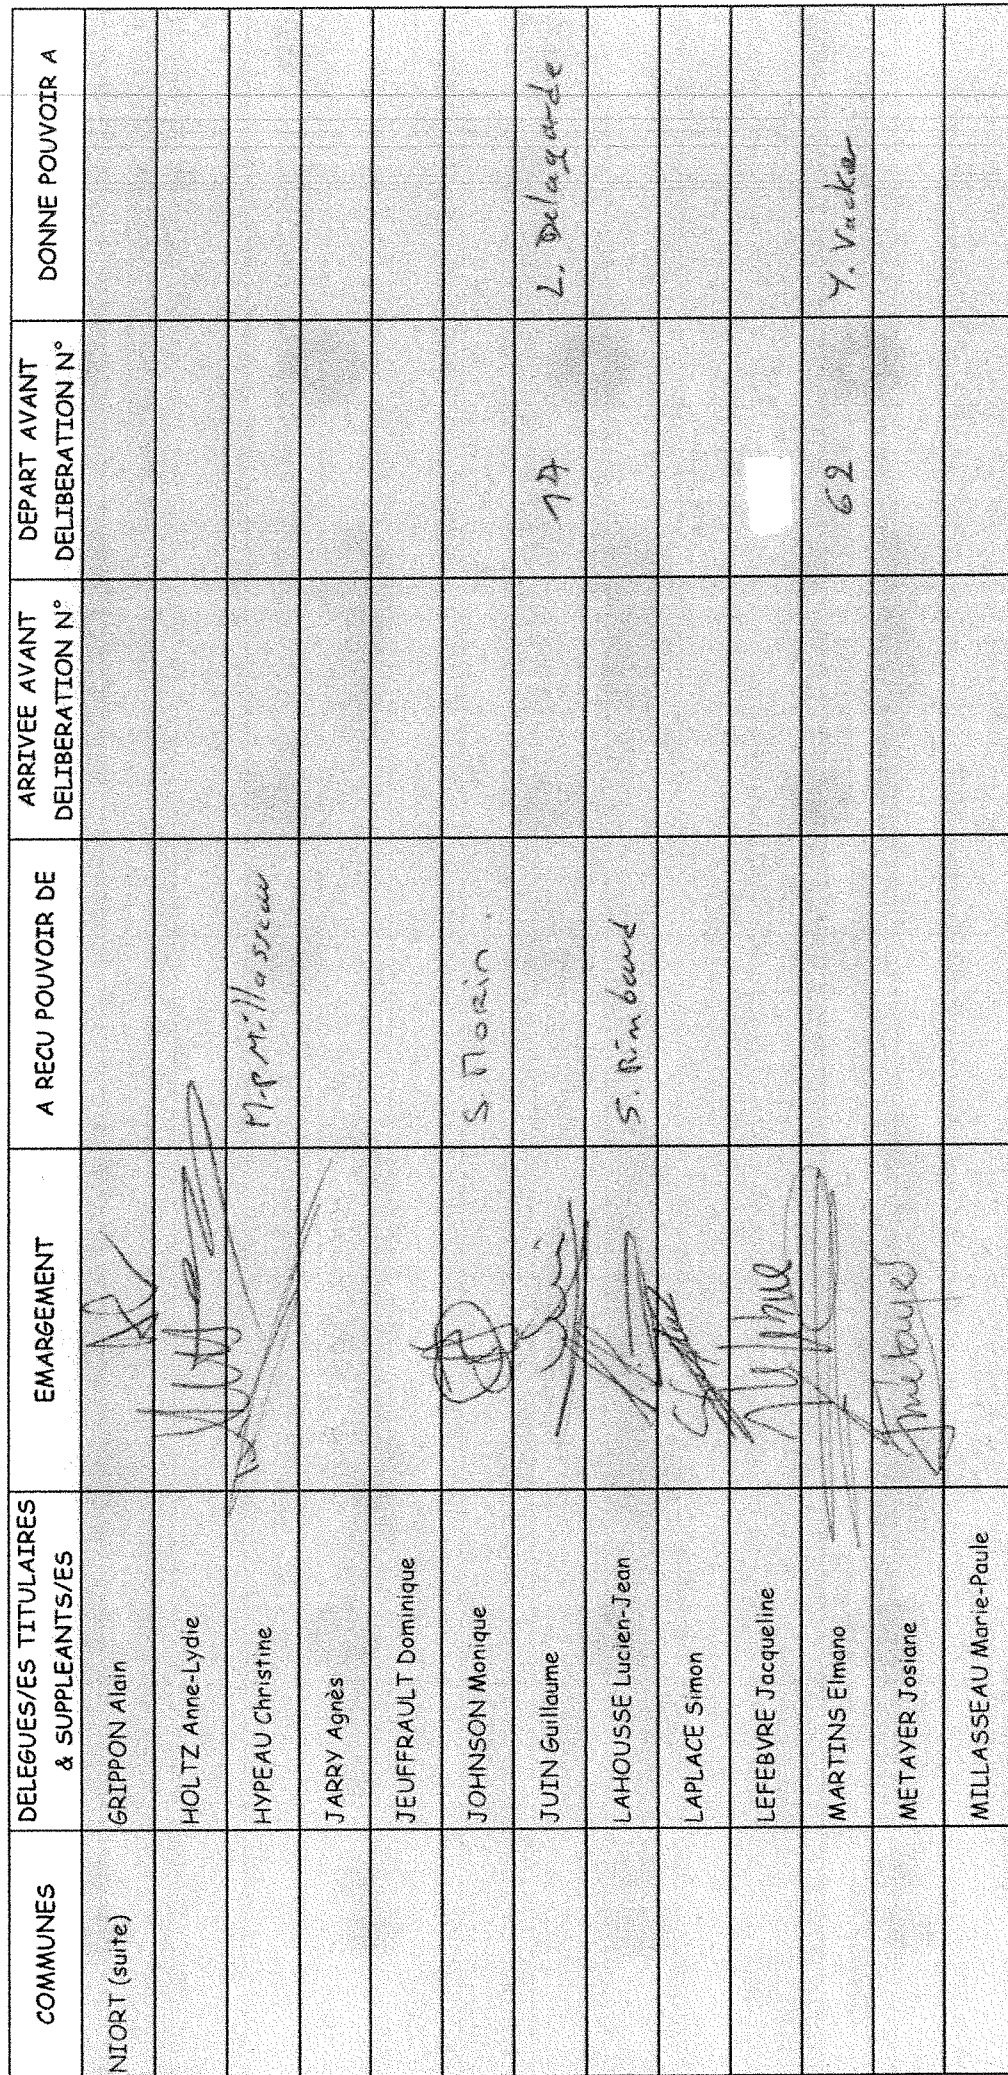 COMMUNES DELEGUES/ES TITULAIRES & SUPPLEANTS/ES EMARGEMENT A RECU POUVOIR DE ARRIVEE AVANT DELIBERATION N° DEPART AVANT DELIBERATION N° DONNE POUVOIR A
NIORT (suite) GRIPPON Alain
HOLTZ Anne-Lydie
HYPEAU Christine M-P Millasseau
JARRY Agnès
JEUFFRAULT Dominique
JOHNSON Monique S Morin.
JUIN Guillaume 14 L. Delagarde
LAHOUSSE Lucien-Jean S. Rimbaud
LAPLACE Simon
LEFEBVRE Jacqueline
MARTINS Elmano 62 Y. Vacker
METAYER Josiane
MILLASSEAU Marie-Paule